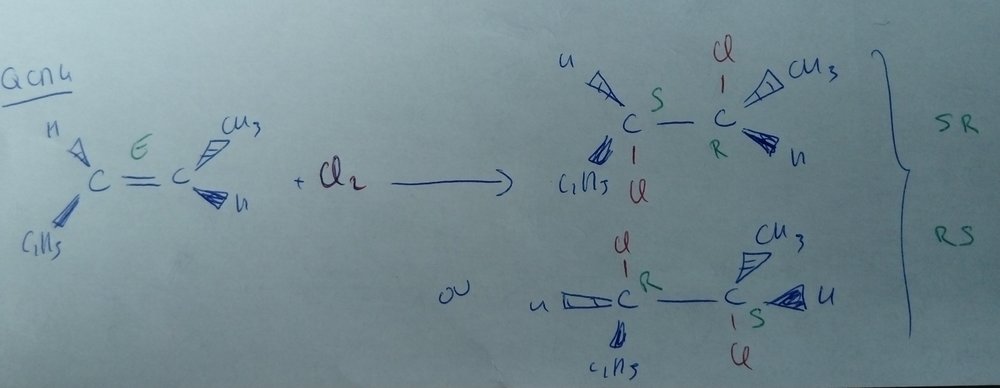 QCM4
H E CH3
C = C + Cl2
C2H5 H
H S Cl CH3
C — C
C2H5 Cl R H
SR
ou
Cl R CH3
H C — C H
C2H5 Cl S
RS